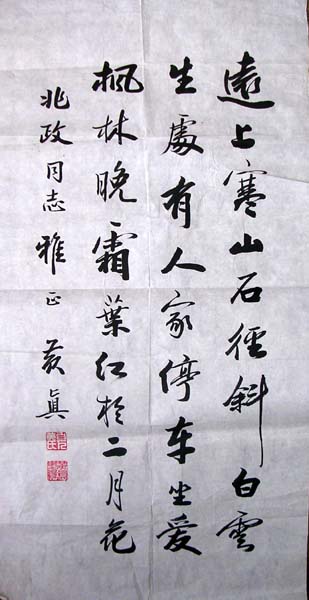 遠上寒山石徑斜白雲
生處有人家停车坐爱
枫林晚霜葉红於二月花
兆政同志雅正 黄真